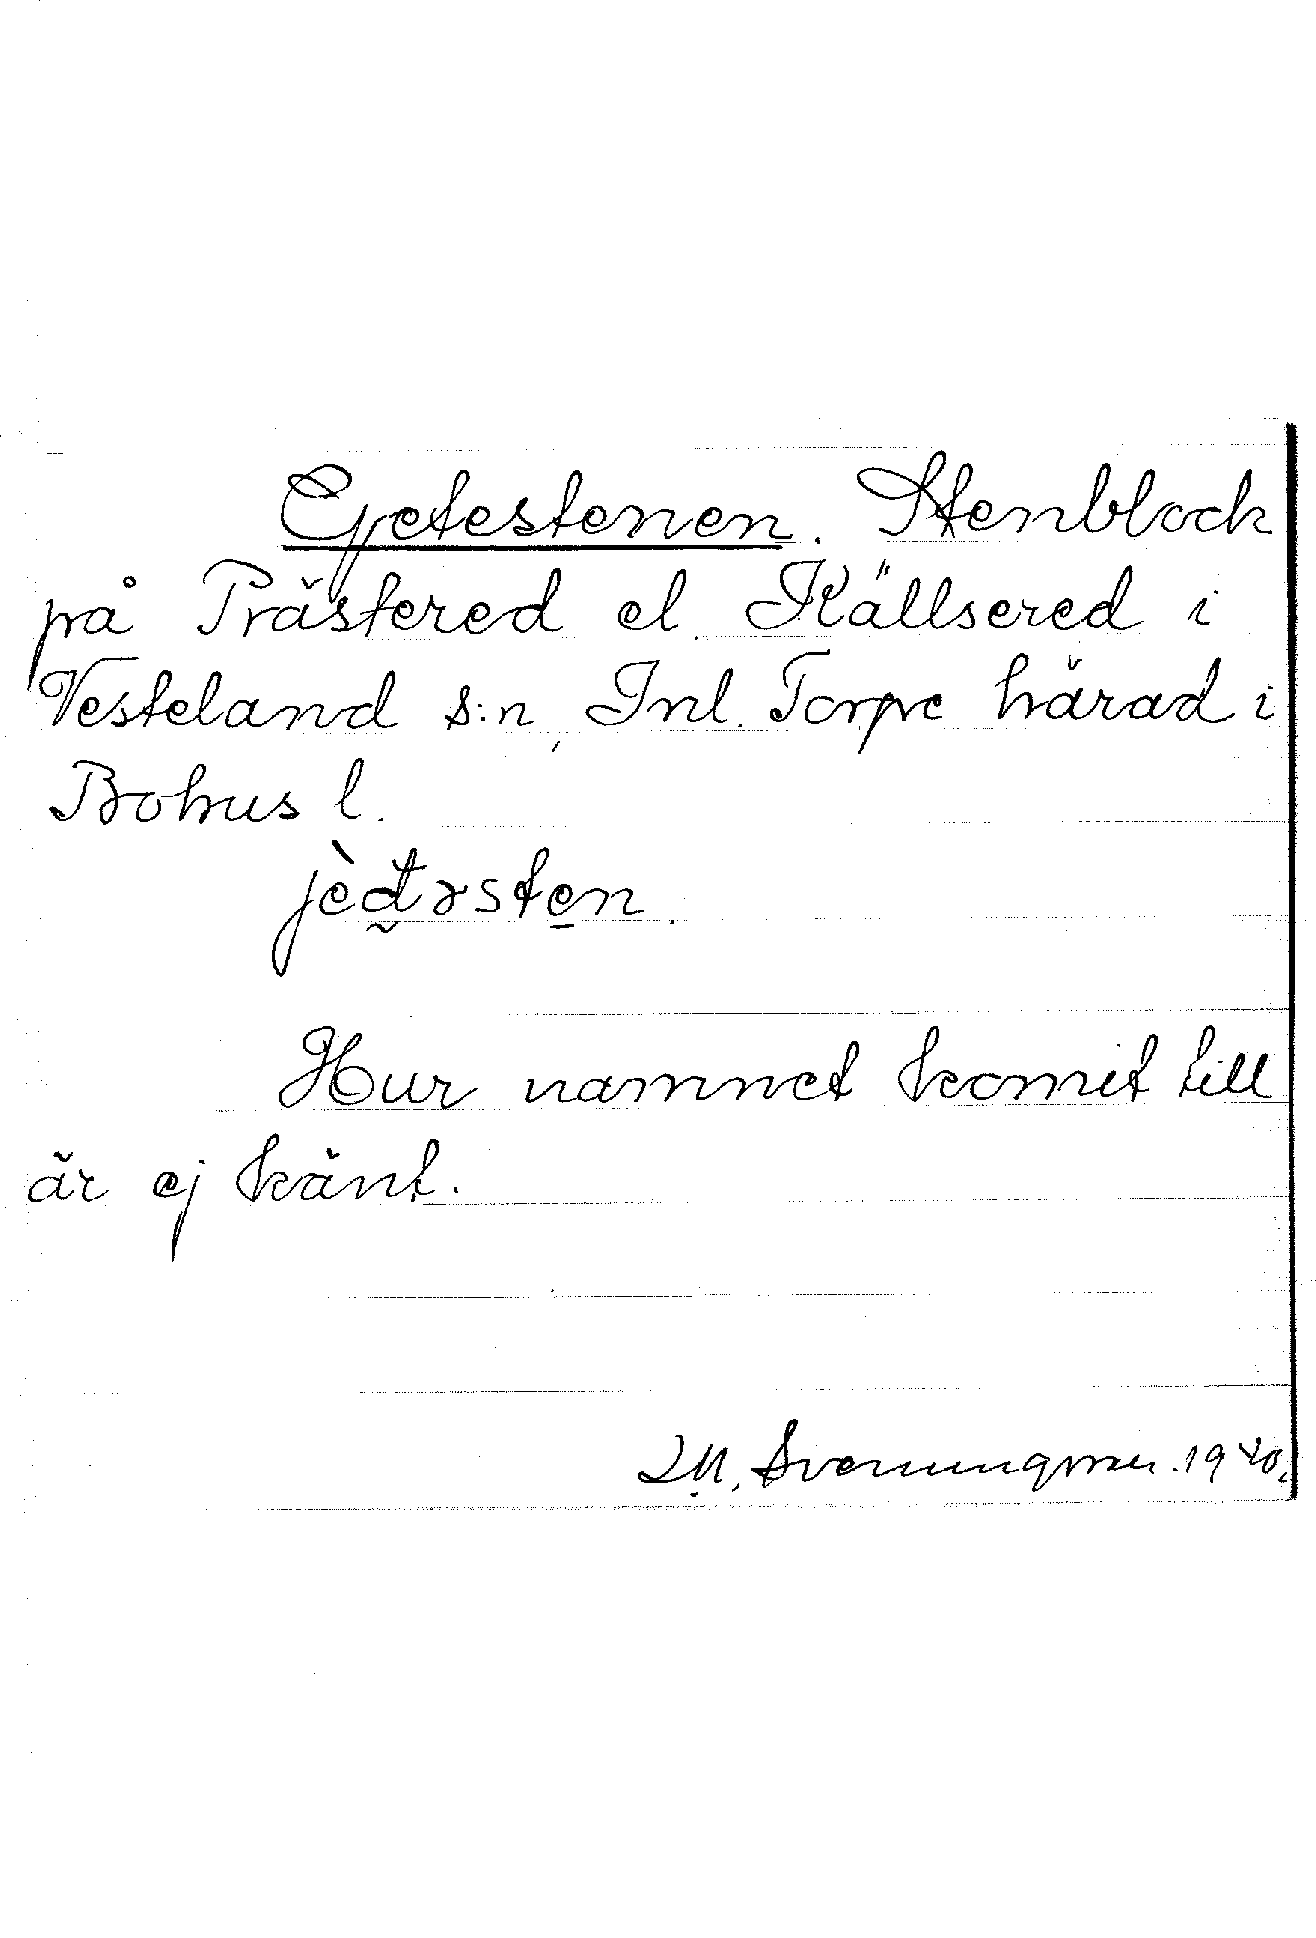 Gjetestenen. Stenblock
på Prästered el. Källsered i
Vesteland s:n, Inl. Torpe härad i
Bohus l.
jèđəsten.
Hur namnet komit till
är ej känt.
Svenungsson. 1940.